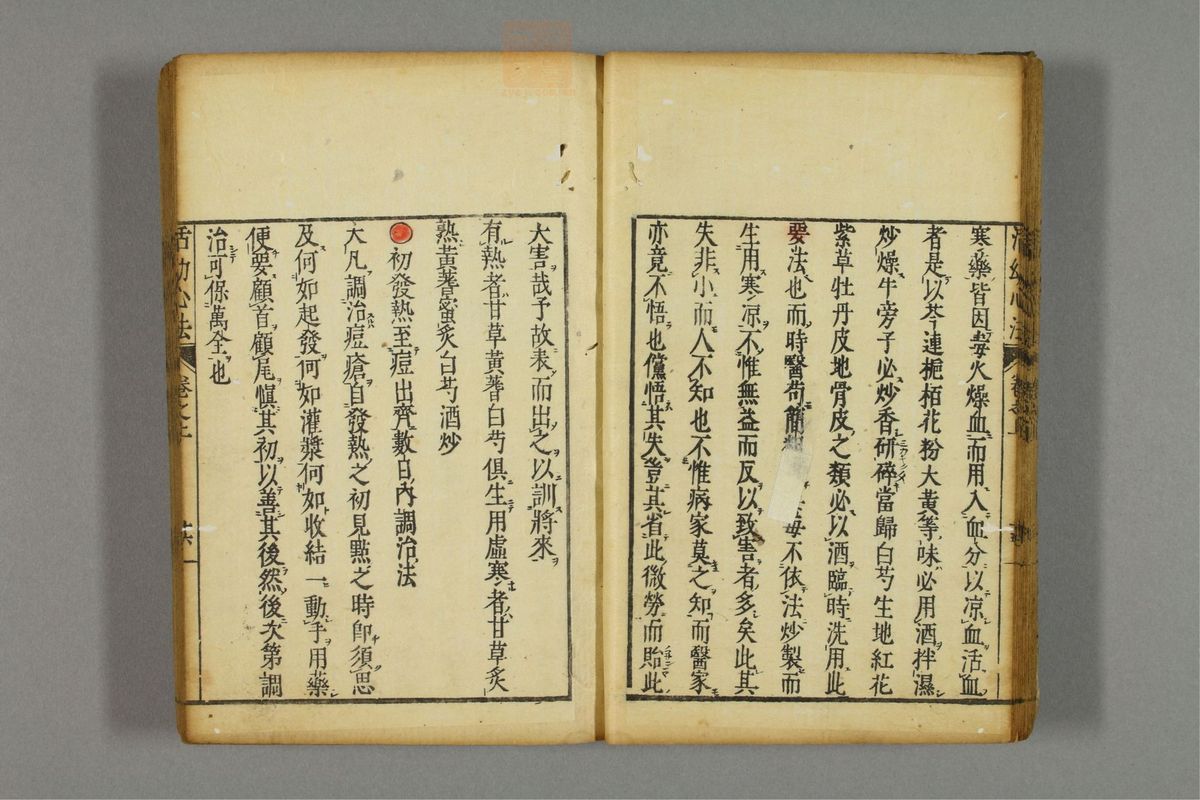 寒藥皆因毒火燥血而用入血分以凉血活血
者是以芩連梔栢花粉大黃等味必用酒拌濕
炒燥牛旁子必炒香研碎當歸白芍生地紅花
紫草牡丹皮地骨皮之類必以酒臨時洗用此
要法也而時醫苟簡 毎不依法炒製而
生用寒凉不惟無益而反以致害者多矣此其
失非小而人不知也不惟病家莫之知而醫家
亦竟不悟也儻悟其失豈其省此微勞而貽此
大害哉予故表而出之以訓將來
有熱者甘草黃蓍白芍俱生用虛寒者甘草炙
熟黃蓍蜜炙白芍酒炒
初發熱至痘出齊數日內調治法
大凡調治痘瘡自發熱之初見點之時卽須思
及何如起發何如灌漿何如收結一動手用藥
便要顧首顧尾愼其初以善其後然後次第調
治可保萬全也
活幼心法 卷之二